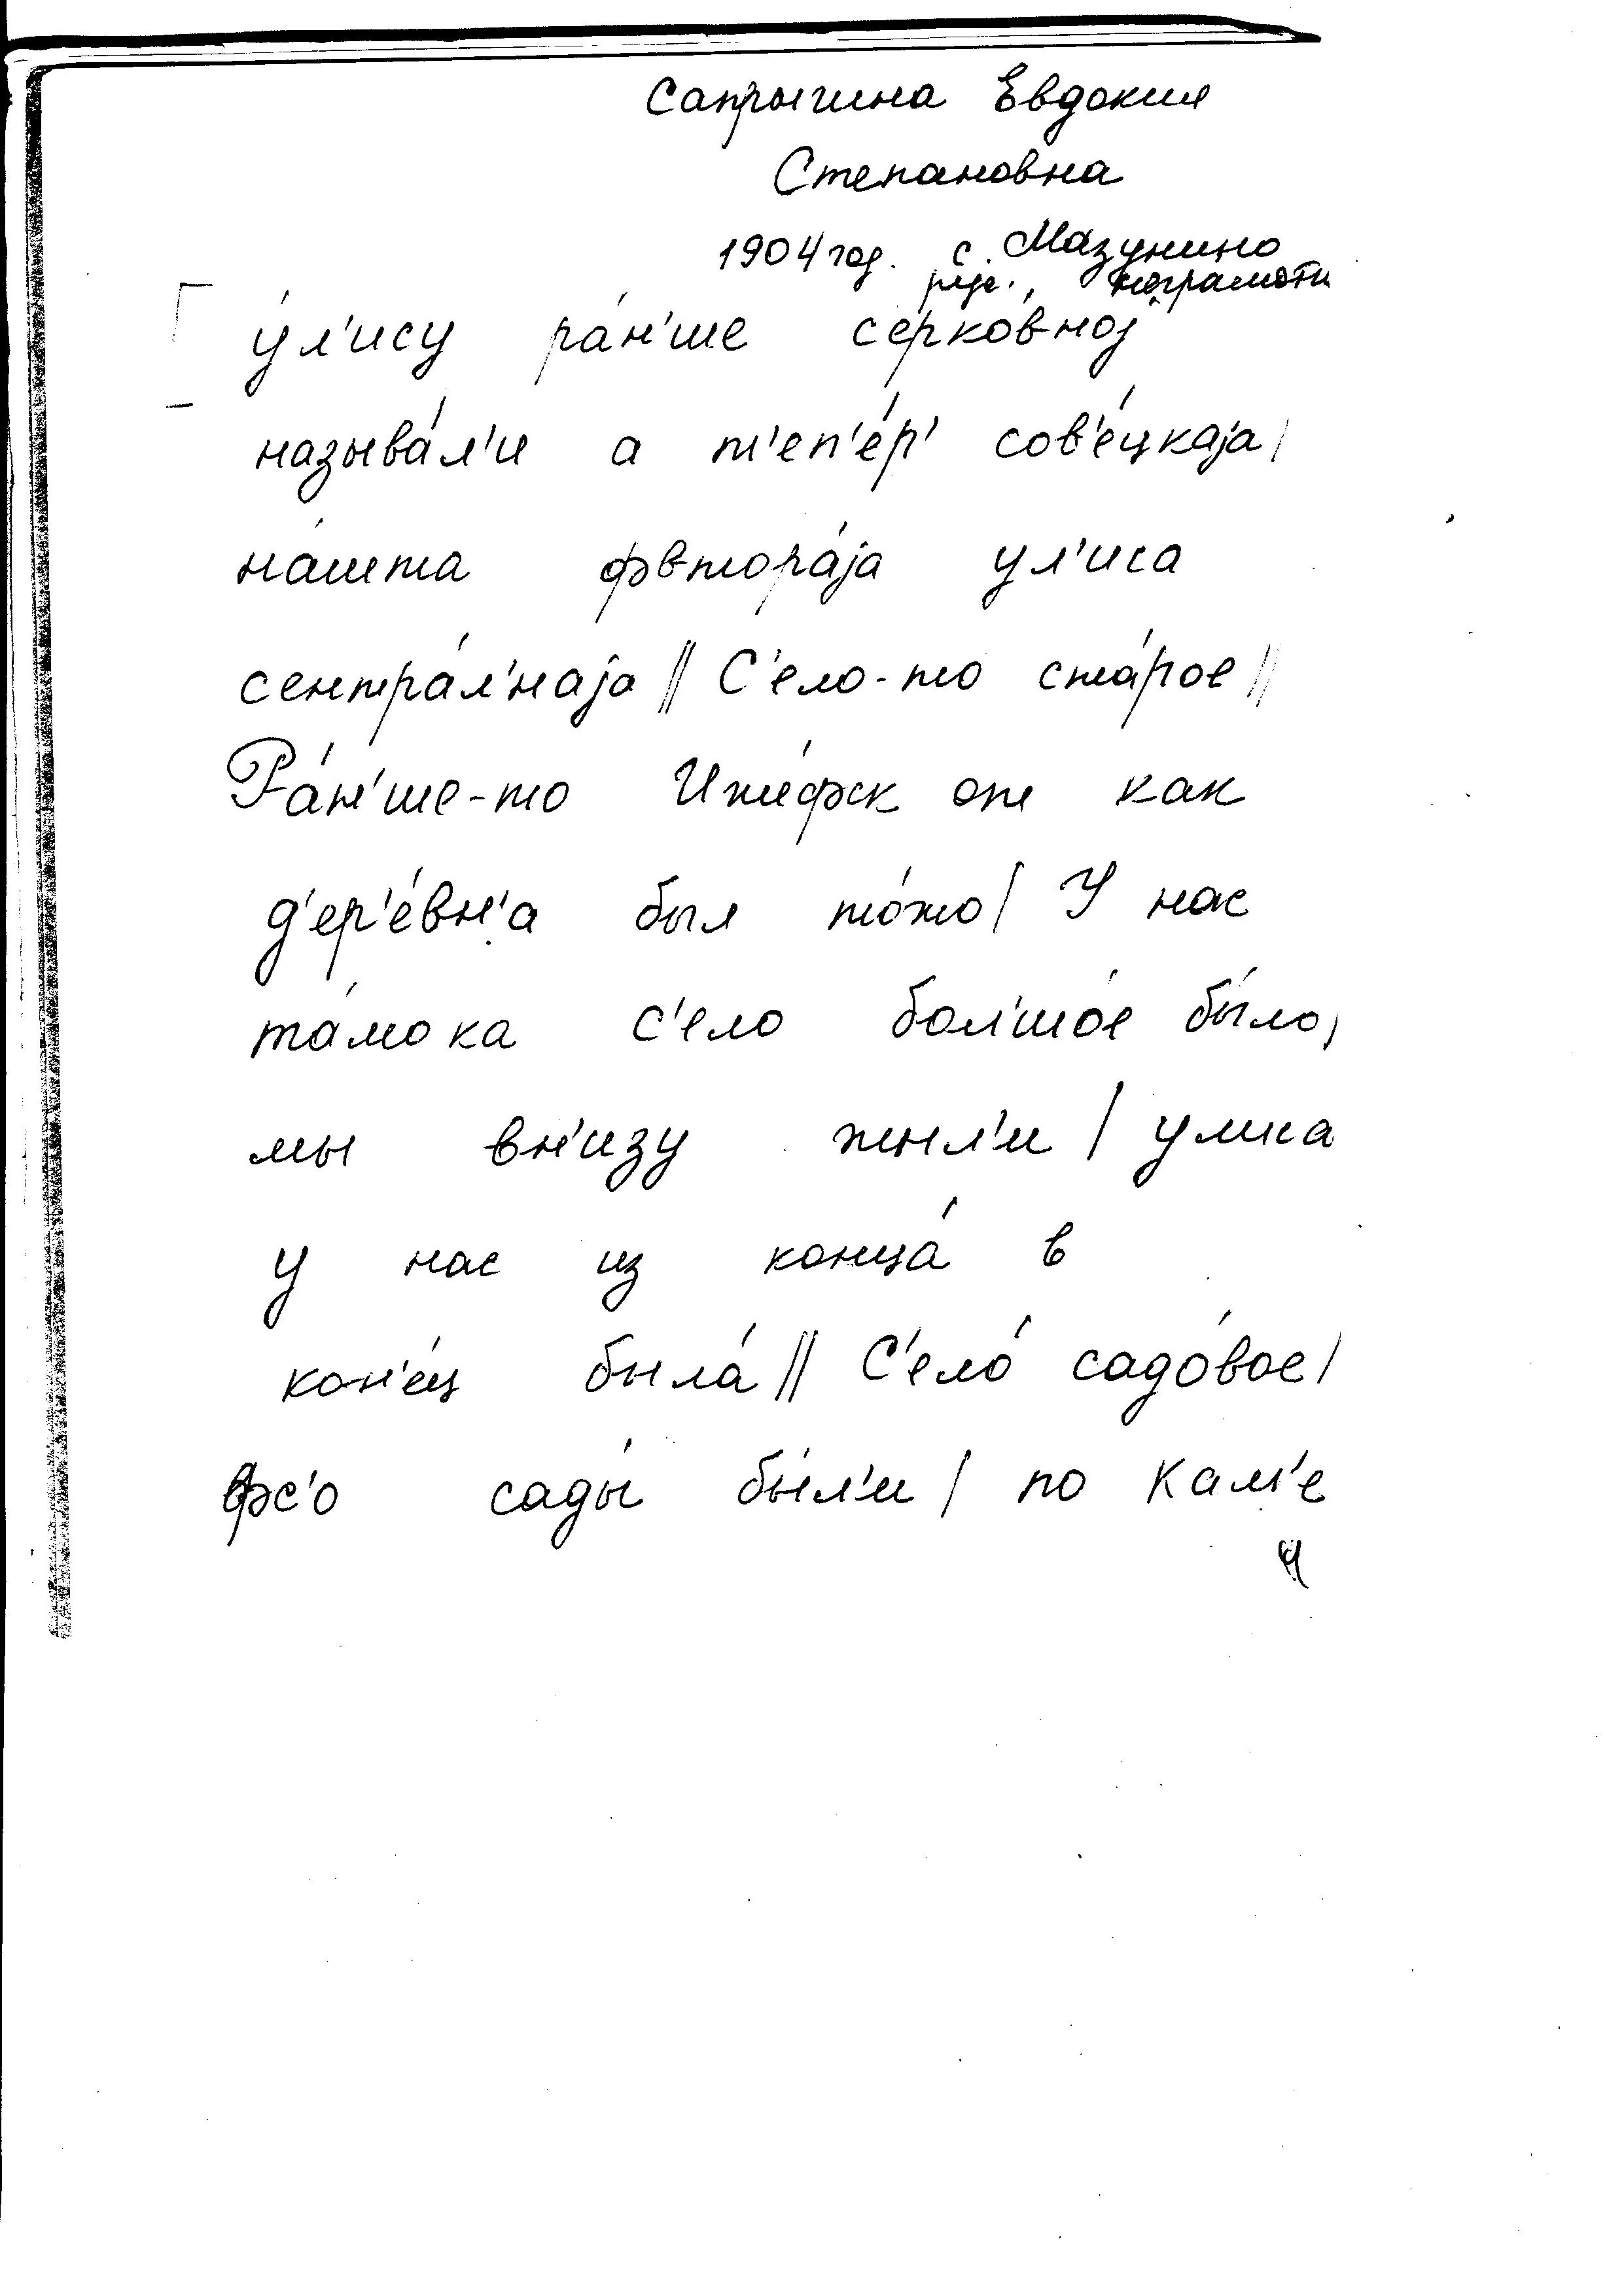 Сапрыгина Евдокия
Степановна
1904 год. с. Мазунино
неграмотн
у́л'ису ра́н'ше серко́вној
называ́л'и а т'еп'е́р' сов'е́цкаја/
на́шта фвтора́ја ул'иса
сентра́л'наја// С'ело-то ста́рое//
Ра́н'ше-то Иже́фск от как
д'ер'е́вн'а был то́жо/ У нас
та́мока с'ело бол'шо́е бы́ло/
мы вн'изу жыл'и/ улиса
у нас из конца́ в
кон'е́ц была́// С'ело́ садо́вое/
фс'о сады́ бы́л'и/ по Кам'е